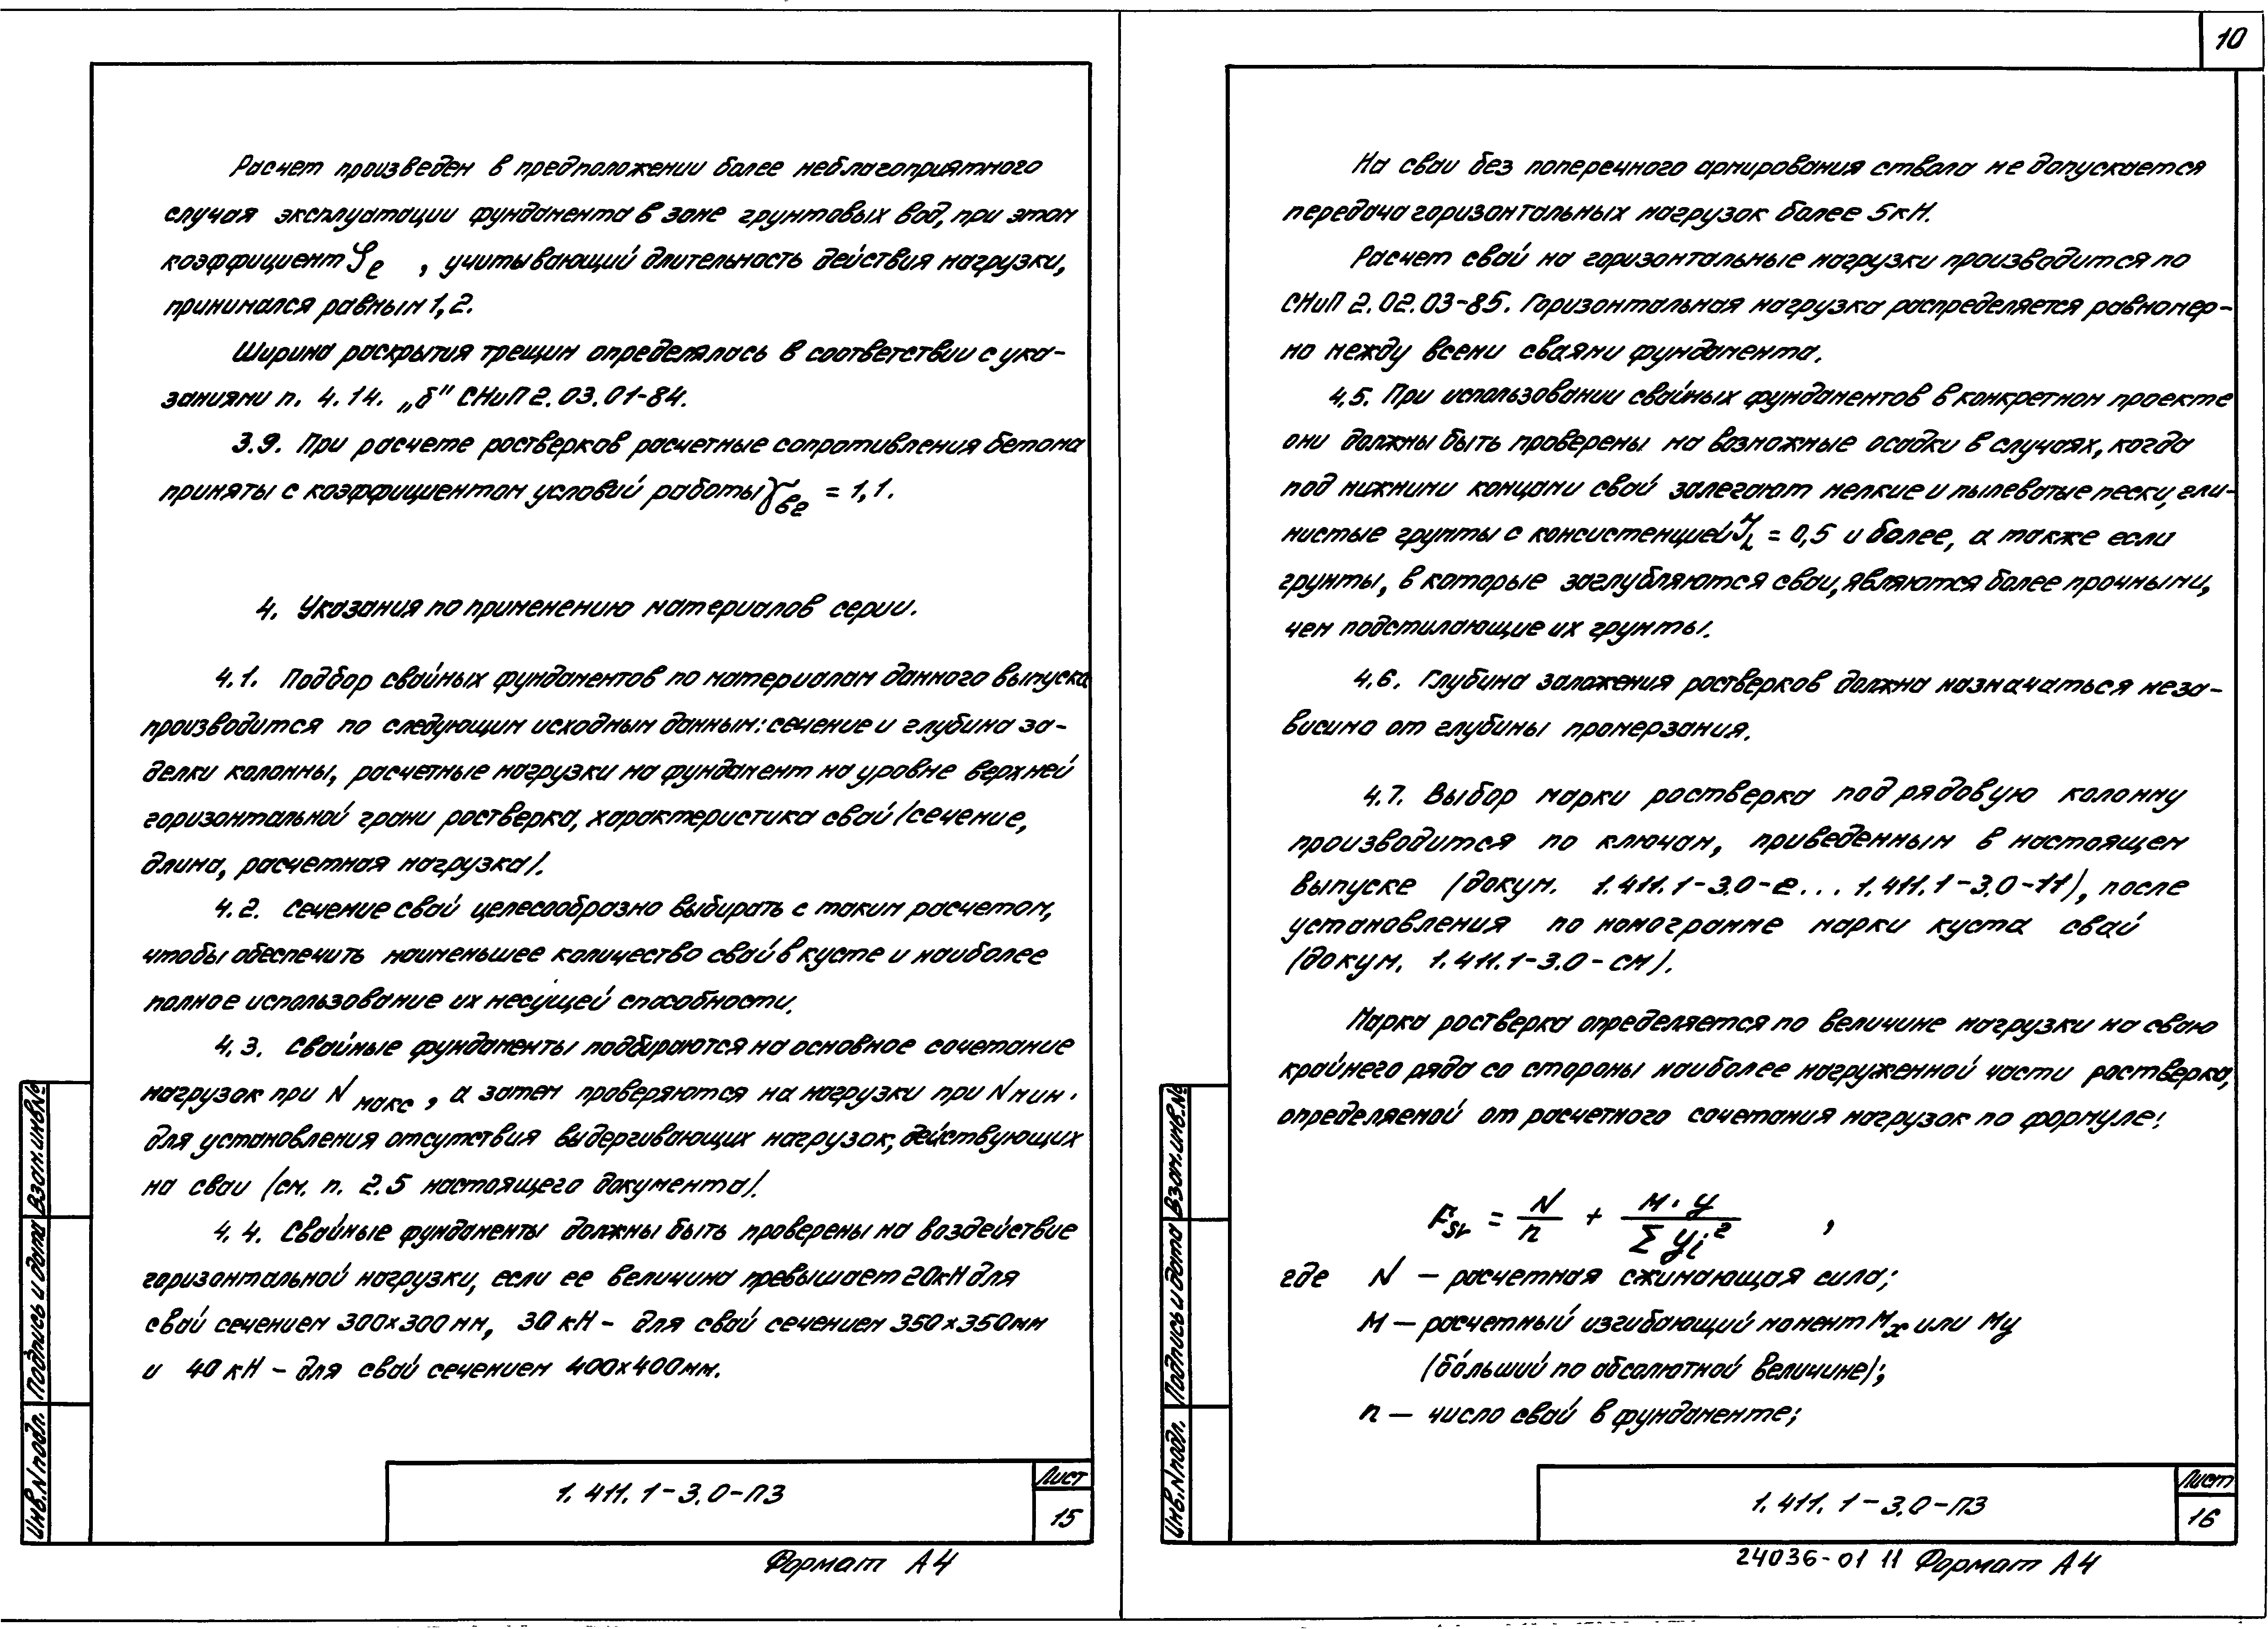 Расчет произведен в предположении более неблагоприятного
случая эксплуатации фундамента в зоне грунтовых вод, при этом
коэффициент φℓ , учитывающий длительность действия нагрузки,
принимался равным 1,2.
Ширина раскрытия трещин определялась в соответствии с ука-
заниями п. 4.14. „б" СНиП 2.03.01-84.
3.9. При расчете ростверков расчетные сопротивления бетона
приняты с коэффициентом условий работы γб2 = 1,1.
4. Указания по применению материалов серии.
4.1. Подбор свайных фундаментов по материалам данного выпуска
производится по следующим исходным данным: сечение и глубина за-
делки колонны, расчетные нагрузки на фундамент на уровне верхней
горизонтальной грани ростверка, характеристика свай /сечение,
длина, расчетная нагрузка/.
4.2. Сечение свай целесообразно выбирать с таким расчетом,
чтобы обеспечить наименьшее количество свай в кусте и наиболее
полное использование их несущей способности.
4.3. Свайные фундаменты подбираются на основное сочетание
нагрузок при N макс , а затем проверяются на нагрузки при N мин.
для установления отсутствия выдергивающих нагрузок, действующих
на сваи /см. п. 2.5 настоящего документа/.
4.4. Свайные фундаменты должны быть проверены на воздействие
горизонтальной нагрузки, если ее величина превышает 20кН для
свай сечением 300×300 мм, 30 кН - для свай сечением 350×350мм
и 40 кН - для свай сечением 400×400мм.
Инв.N подл. Подпись и дата Взам.инв.№
1.411.1-3.0-ПЗ
Лист
15
Формат А4
10
На сваи без поперечного армирования ствола не допускается
передача горизонтальных нагрузок более 5кН.
Расчет свай на горизонтальные нагрузки производится по
СНиП 2.02.03-85. Горизонтальная нагрузка распределяется равномер-
но между всеми сваями фундамента.
4.5. При использовании свайных фундаментов в конкретном проекте
они должны быть проверены на возможные осадки в случаях, когда
под нижними концами свай залегают мелкие и пылеватые пески, гли-
нистые грунты с консистенцией JL = 0,5 и более, а также если
грунты, в которые заглубляются сваи, являются более прочными,
чем подстилающие их грунты.
4.6. Глубина заложения ростверков должна назначаться неза-
висимо от глубины промерзания.
4.7. Выбор марки ростверка под рядовую колонну
производится по ключам, приведенным в настоящем
выпуске (докум. 1.411.1-3.0-2... 1.411.1-3.0-11), после
установления по номограмме марки куста свай
(докум. 1.411.1-3.0-СМ).
Марка ростверка определяется по величине нагрузки на сваю
крайнего ряда со стороны наиболее нагруженной части ростверка,
определяемой от расчетного сочетания нагрузок по формуле:
Fsv = N/n + M·y/Σyi² ,
где N — расчетная сжимающая сила;
M — расчетный изгибающий момент Mx или My
(бо́льший по абсолютной величине);
n — число свай в фундаменте;
Инв.N подл. Подпись и дата Взам.инв.№
1.411.1-3.0-ПЗ
Лист
16
24036-01 11 Формат А4